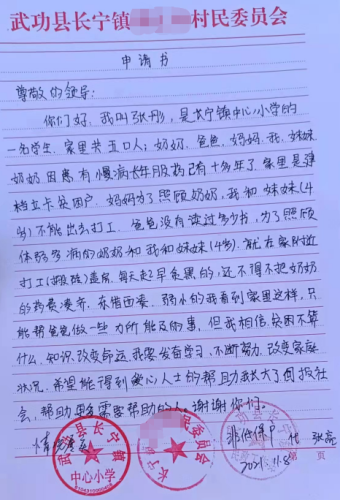 武功县长宁镇 村民委员会
申请书
尊敬的领导:
你们好,我叫张彤,是长宁镇中心小学的
一名学生,家里共五口人;奶奶、爸爸、妈妈、我、妹妹
奶奶因患有慢病长年服药已有十多年了,家里是建
档立卡贫困户,妈妈为了照顾奶奶,我和妹妹(4
岁)不能出去打工,爸爸没有读过多少书,为了照顾
体弱多病的奶奶和我和妹妹(4岁).就在家附近
打工(搬砖)盖房.每天起早贪黑的,还不得不把奶奶
的药费凑齐,东借西凑,弱小的我看到家里这样,只
能帮爸爸做一些力所能及的事,但我相信,贫困不算
什么,知识改变命运,我要发奋学习,不断努力,改变家庭
状况,希望能得到爱心人士的帮助我长大了回报社
会,帮助更多需要帮助的人。谢谢你们。
情况属实 非低保户
武功县长宁镇 中心小学
民委员会
第 页
2021.1.8